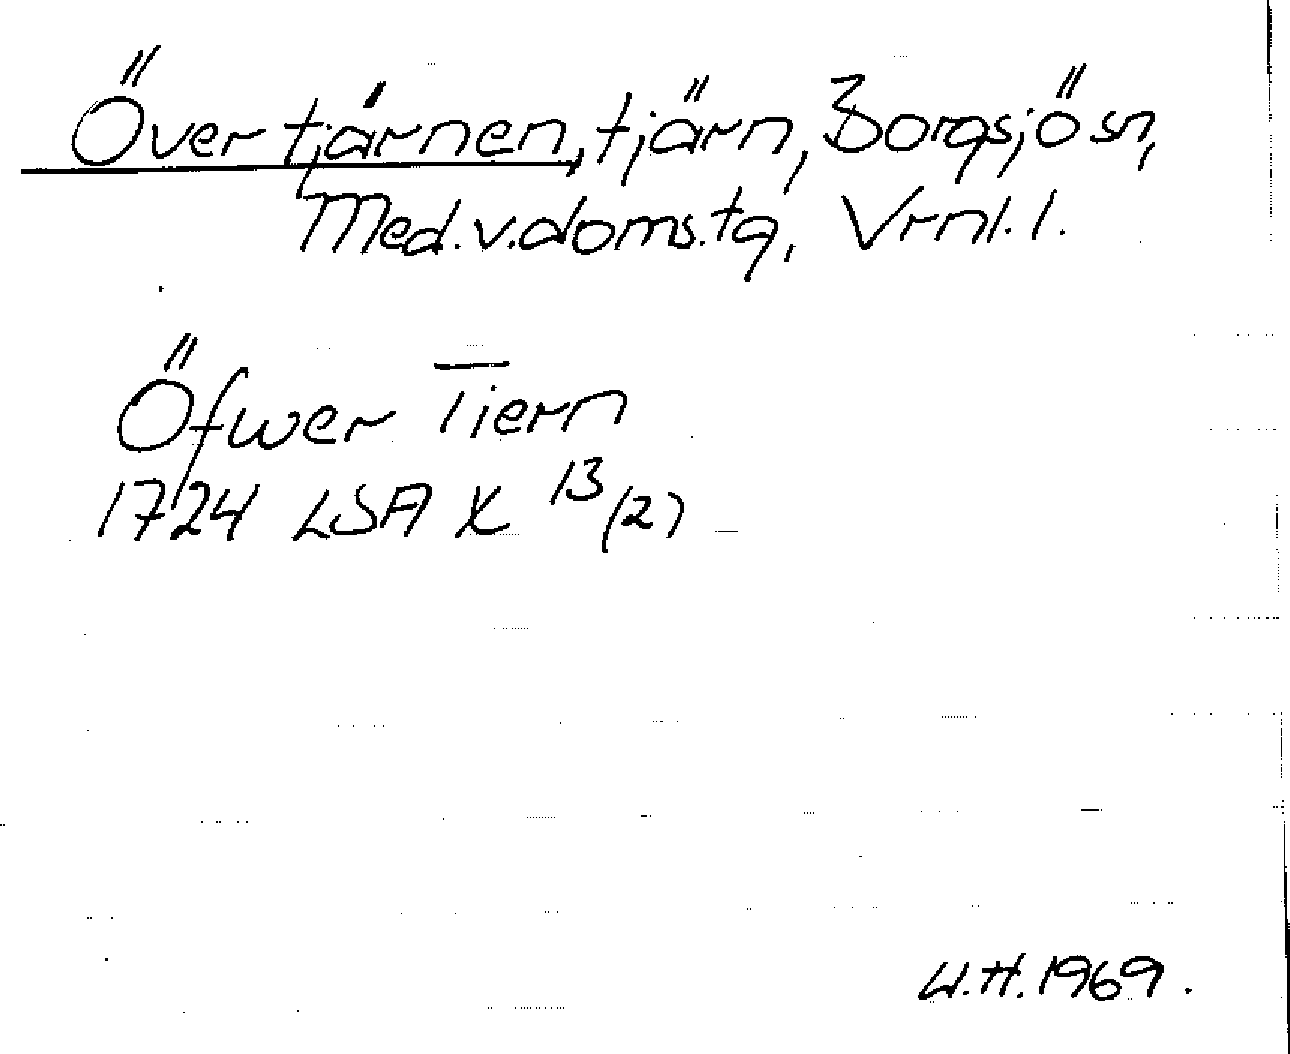 Övertjärnen, tjärn, Borgsjö sn,
Med.v.doms.tg, Vrnl. l.
Öfwer Tiern
1724 LSA X 13/(2)
U.H. 1969.